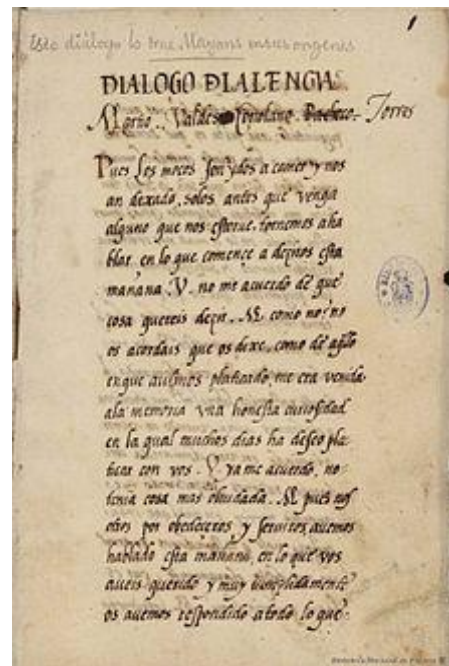 1
Este diálogo lo trae Mayans en sus orígenes
DIALOGO DLALENGVA
Marcio. Valdes. Coriolano. Pacheco. Torres
Pues los moços son ydos a comer y nos
an dexado, solos antes que venga
alguno que nos estorue, tornemos a ha
blar en lo que començe a deziros esta
mañana. V. no me acuerdo de que
cosa quereis dezir. M. como no? no
os acordais que os dixe, como de aqllo
en que auiamos platicado, me era venida
ala memoria vna honesta curiosidad
en la qual muchos dias ha deseo pla
ticar con vos. V. ya me acuerdo, no
tenia cosa mas oluidada. M. pues nos
otros por obedeceros, y seruiros, auemos
hablado esta mañana, en lo que vos
aueis querido y muy cumplidamente
os auemos respondido a todo lo que